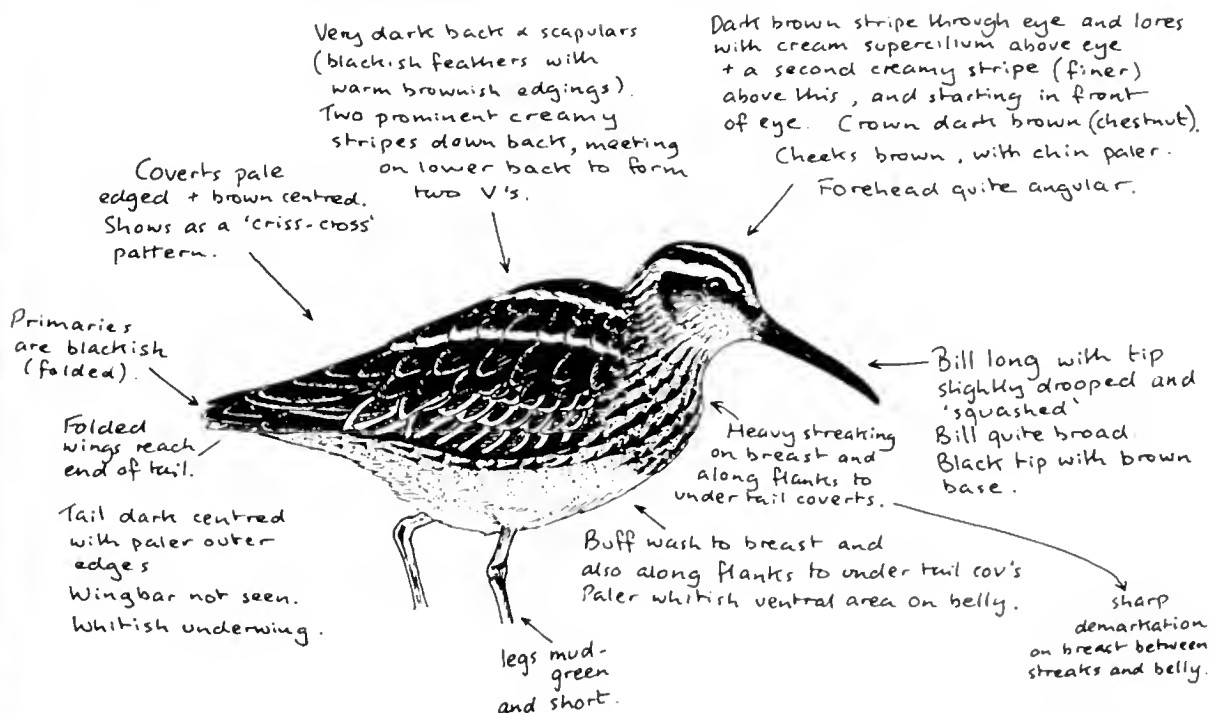 Very dark back & scapulars
(blackish feathers with
warm brownish edgings).
Two prominent creamy
stripes down back, meeting
on lower back to form
two V's.
Dark brown stripe through eye and lores
with cream supercilium above eye
+ a second creamy stripe (finer)
above this, and starting in front
of eye. Crown dark brown (chestnut).
Cheeks brown, with chin paler.
Forehead quite angular.
Coverts pale
edged + brown centred.
Shows as a 'criss-cross'
pattern.
Primaries
are blackish
(folded).
Folded
wings reach
end of tail.
Tail dark centred
with paler outer
edges
Wingbar not seen.
Whitish underwing.
Bill long with tip
slightly drooped and
'squashed'
Bill quite broad
Black tip with brown
base.
Heavy streaking
on breast and
along flanks to
under tail coverts.
Buff wash to breast and
also along flanks to under tail cov's
Paler whitish ventral area on belly.
sharp
demarkation
on breast between
streaks and belly.
legs mud-
green
and short.